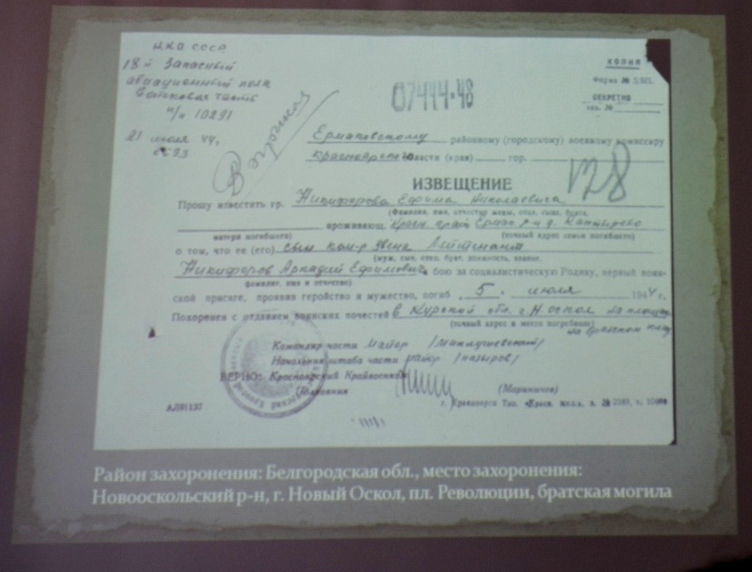 Н.К.О. СССР
18й Запасный
авиационный полк
Войсковая часть
п/п 10291
21 июля 44,
КОПИЯ
Форма №
СЕКРЕТНО
экз. №
07444-48
Верников
128
Ермаковскому районному (городскому) военному комиссару
области (края) гор.
ИЗВЕЩЕНИЕ
Прошу известить гр. Никифорова Ефима Николаевича
(Фамилия, имя, отчество жены, отца, сына, брата,
матери погибшего) проживающ. Красн. край Ермак. р-н д.
(точный адрес семьи погибшего)
о том, что ее (его) сын ком-р звена Лейтенант
(муж, сын, отец, брат, должность, звание,
Никифоров Аркадий Ефимович бою за социалистическую Родину, верный воин-
фамилия, имя и отчество)
ской присяге, проявив геройство и мужество, погиб 5. июля 1944 г.
Похоронен с отданием воинских почестей в Курской обл. г. Н. оскол на площади
(точный адрес и место погребения)
на братском
Командир части майор
Начальник штаба части майор /Назыров/
ВЕРНО: Красноярский Крайвоенком
Полковник (Мариничев)
АЛ01137
г. Красноярск Тип. «Красн.
Район захоронения: Белгородская обл., место захоронения:
Новооскольский р-н, г. Новый Оскол, пл. Революции, братская могила